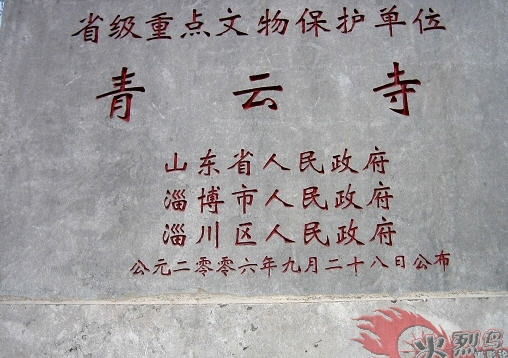 省级重点文物保护单位
青云寺
山东省人民政府
淄博市人民政府
淄川区人民政府
公元二零零六年九月二十八日公布
火烈鸟